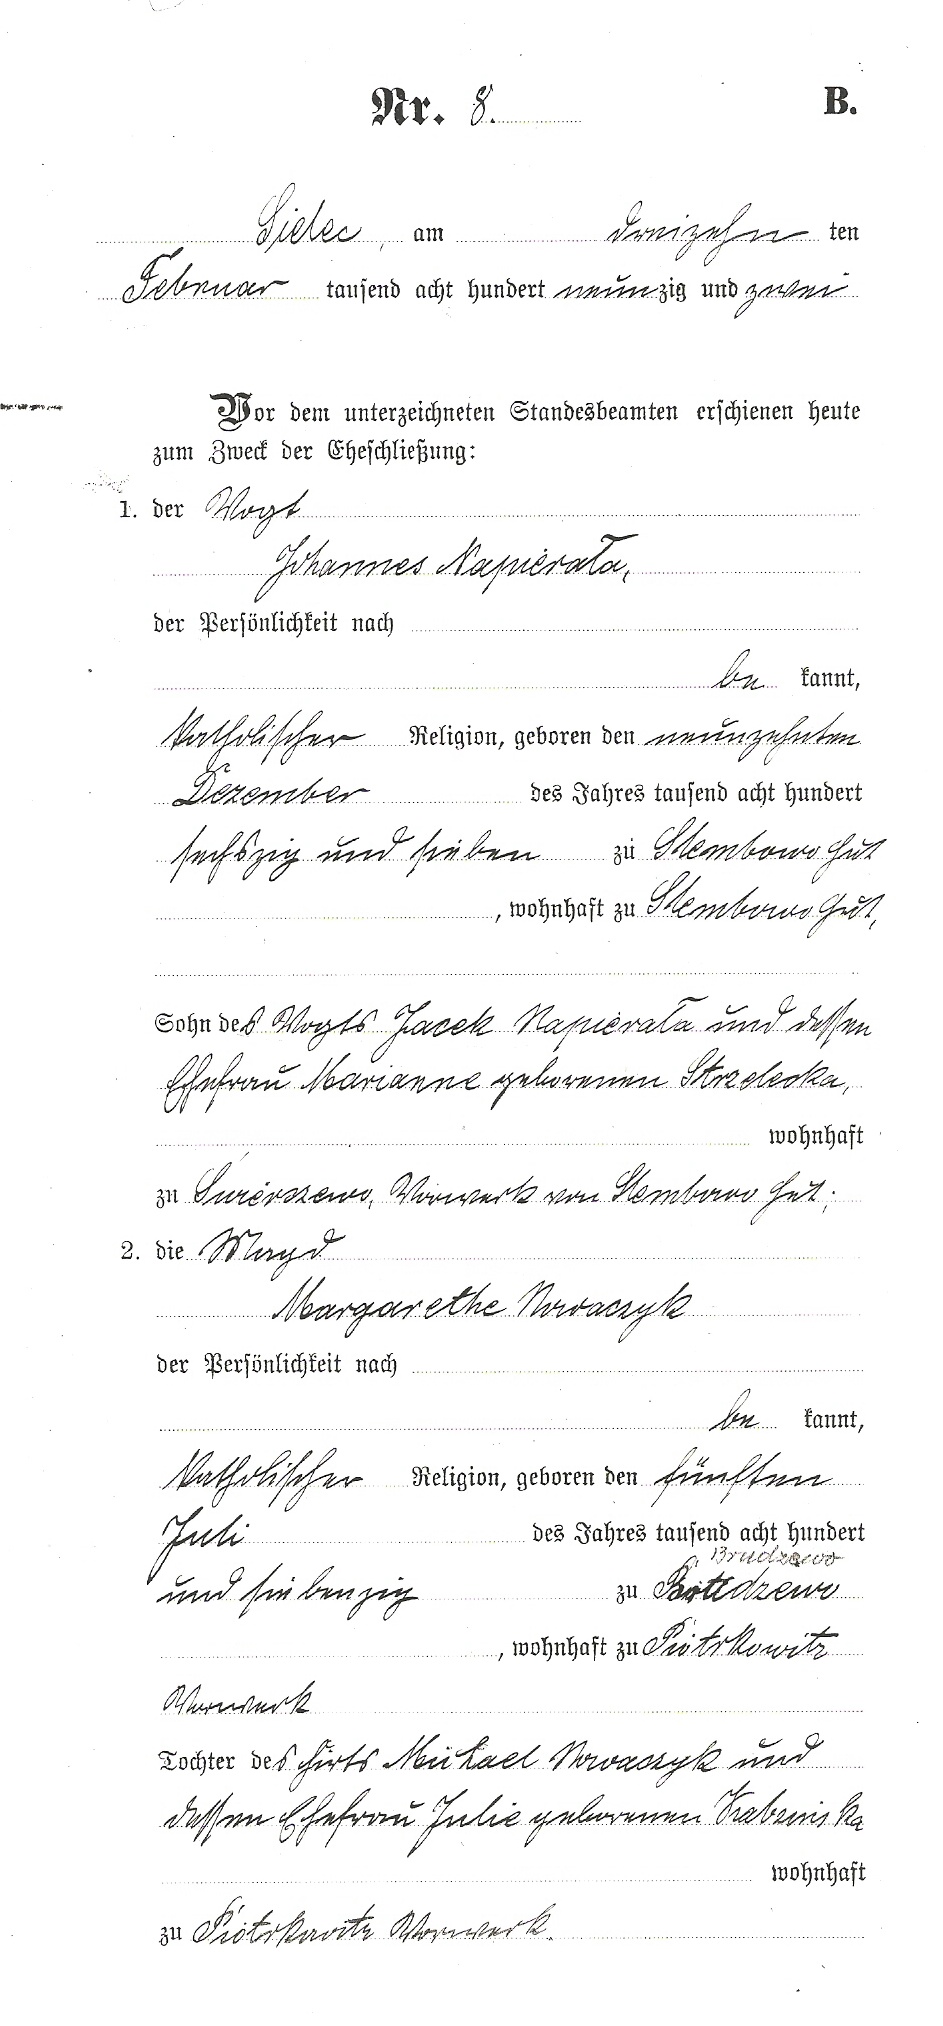 Nr. 8. B.
Sielec, am dreizehn ten
Februar tausend acht hundert neunzig und zwei
Vor dem unterzeichneten Standesbeamten erschienen heute
zum Zweck der Eheschließung:
1. der Vogt
Johannes Napierała,
der Persönlichkeit nach
be kannt,
katholischer Religion, geboren den neunzehnten
Dezember des Jahres tausend acht hundert
sechszig und sieben zu Slembowo Gut
, wohnhaft zu Slembowo Gut,
Sohn des Vogts Jacek Napierała und dessen
Ehefrau Marianne geborenen Strzelecka,
wohnhaft
zu Vorwerk von Slembowo Gut;
2. die Magd
Margarethe Nowaczyk
der Persönlichkeit nach
be kannt,
katholischer Religion, geboren den fünften
Juli des Jahres tausend acht hundert
Brudzewo
und siebenzig zu
, wohnhaft zu Piotrkowitz
Vorwerk
Tochter des Hirts Michael Nowaczyk und
dessen Ehefrau Julie geborenen
wohnhaft
zu Piotrkowitz Vorwerk.